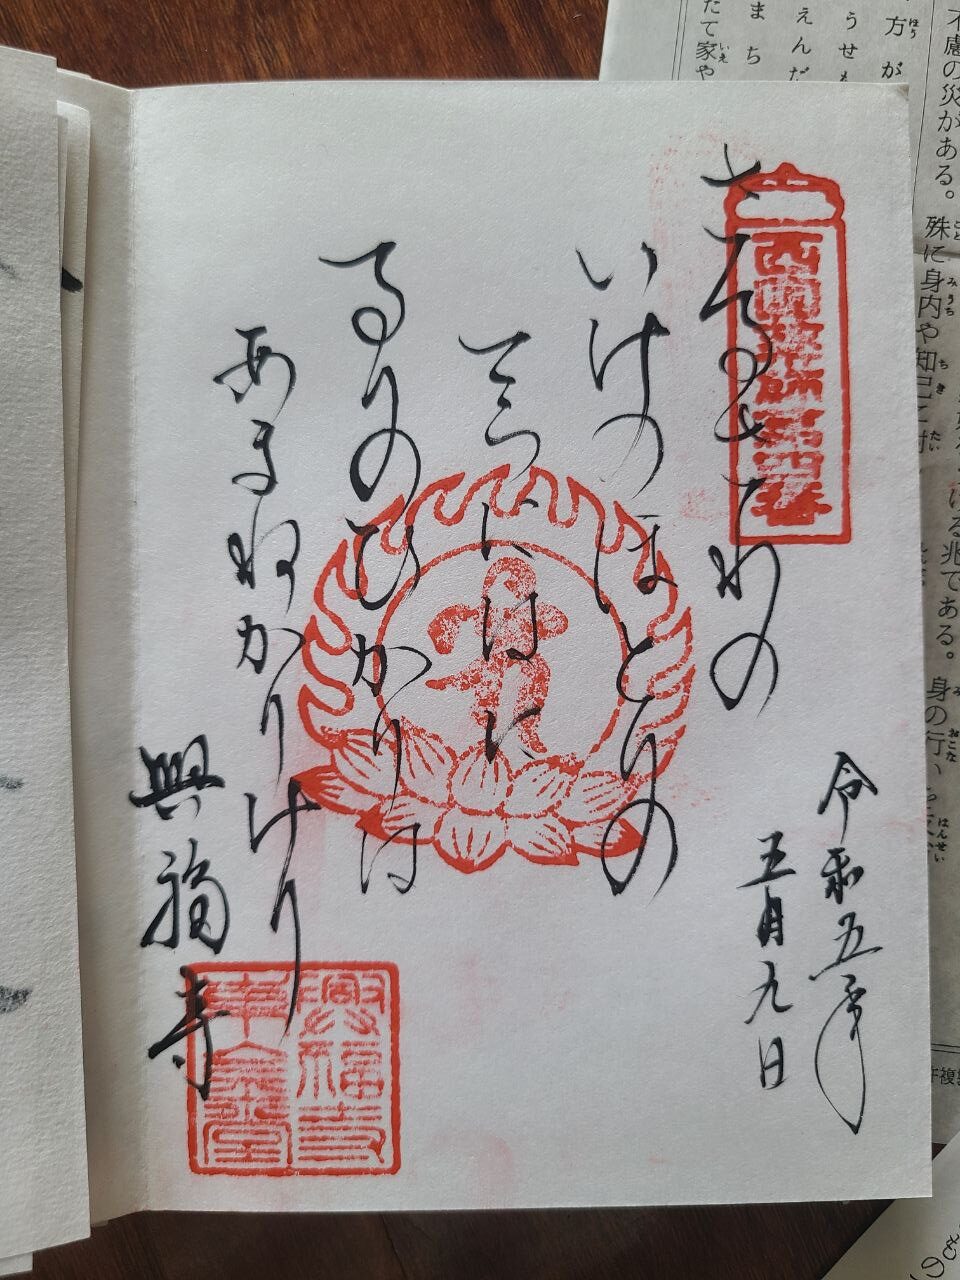 西国薬師第四番
さるさわの
いけのほとりの
てらにはに
るりのひかりは
あまねかりけり
令和五年
五月九日
興福寺
興福寺
東金堂
不慮の災がある。
殊に身内や知己に対
ける兆である。
身の行い
方が
うせ
えんだ
まち
たて家や